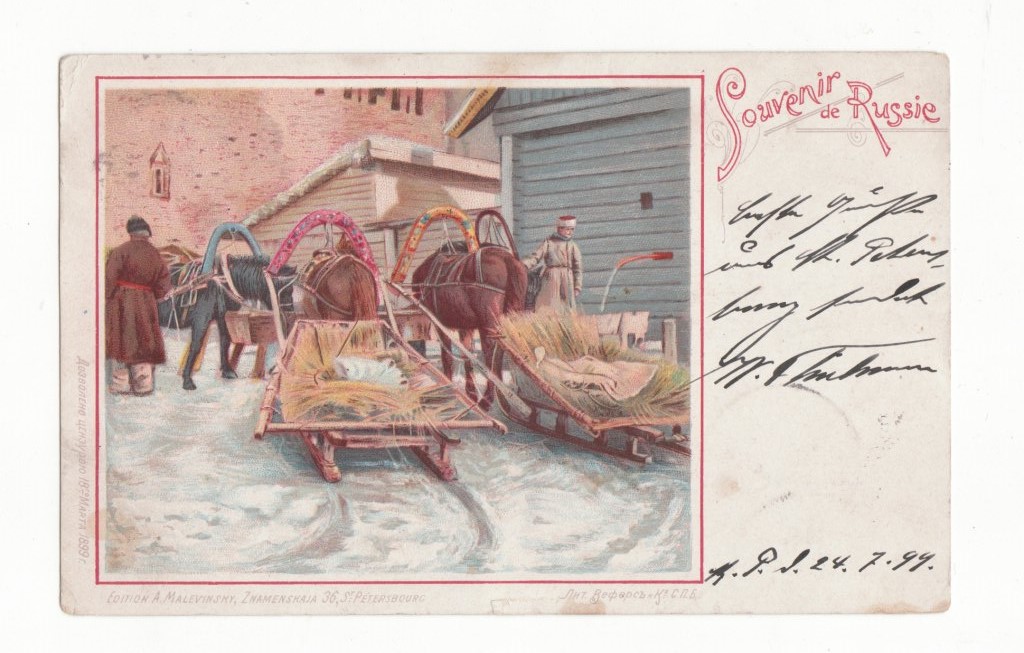 Souvenir
de Russie
beste Grüße
aus St. Peters-
burg sendet
W.
St. P. d. 24. 7. 99.
Дозволено цензурою 18го Марта 1899 г.
Edition A. Malevinsky, Znamenskaja 36, St Petersbourg
Лит. Веферсъ и Ко С.П.Б.